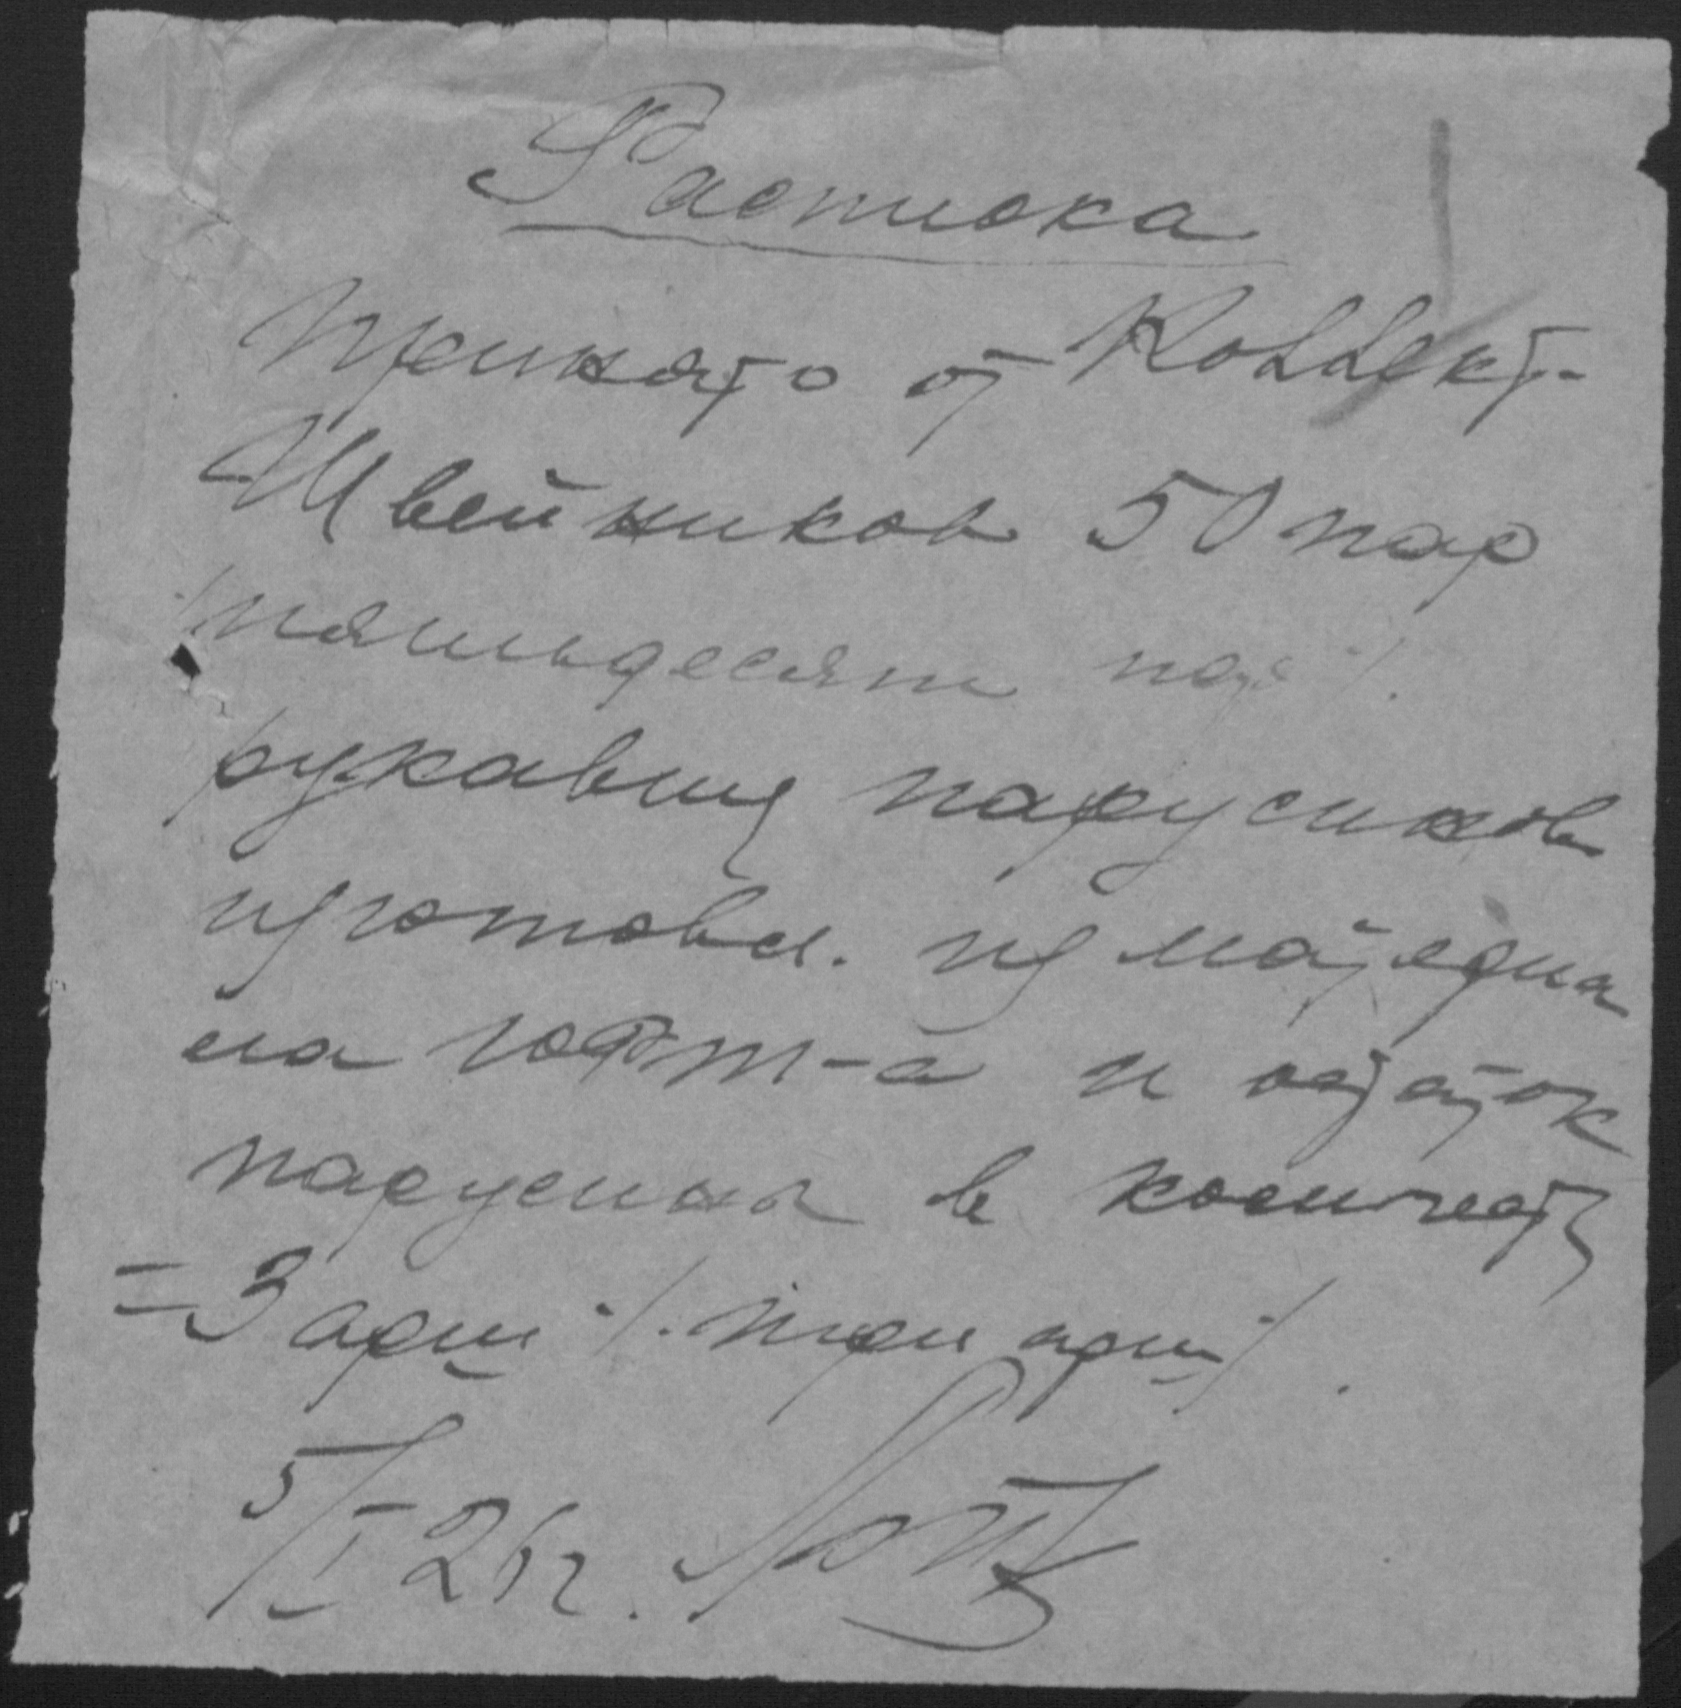 Расписка
Принято от Коллект.
Швейников 50 пар
/пятьдесят пар/.
рукавиц парусинов
изготовл. из материа
ла и остаток
парусины в количеств
= 3 арш /. три арш/.
5/I 26 г.